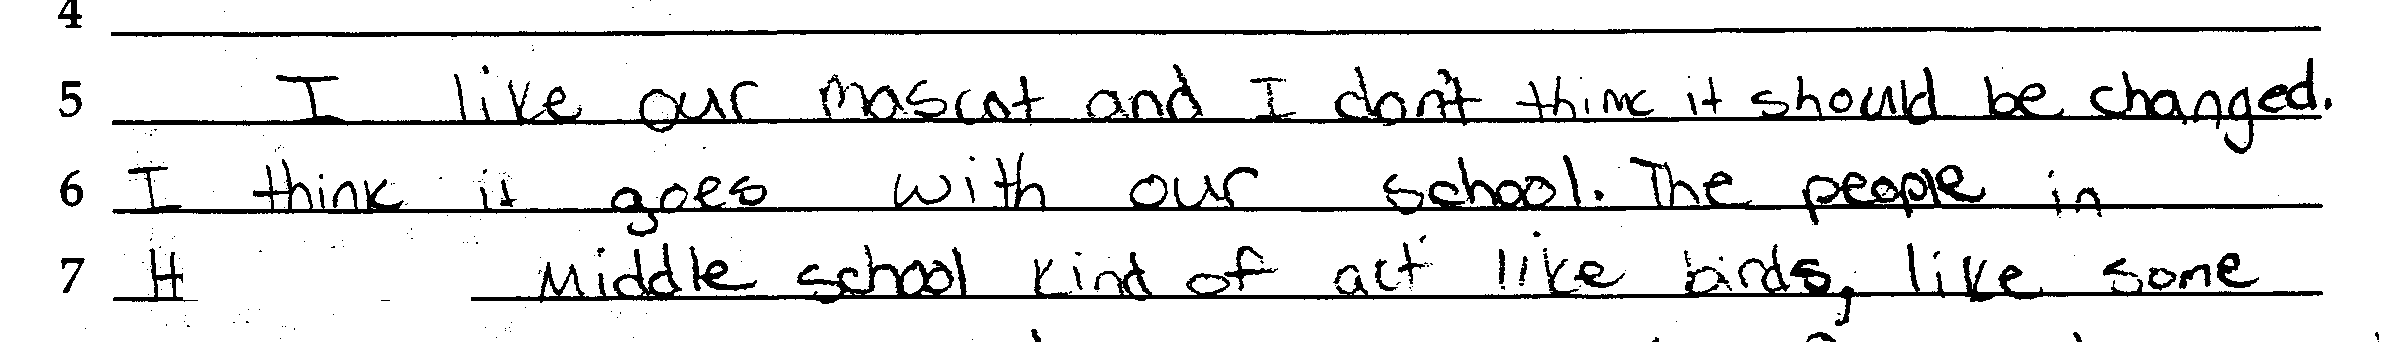 4
5 I like our mascot and I don't think it should be changed.
6 I think it goes with our school. The people in
7 H Middle school kind of act like birds, like some